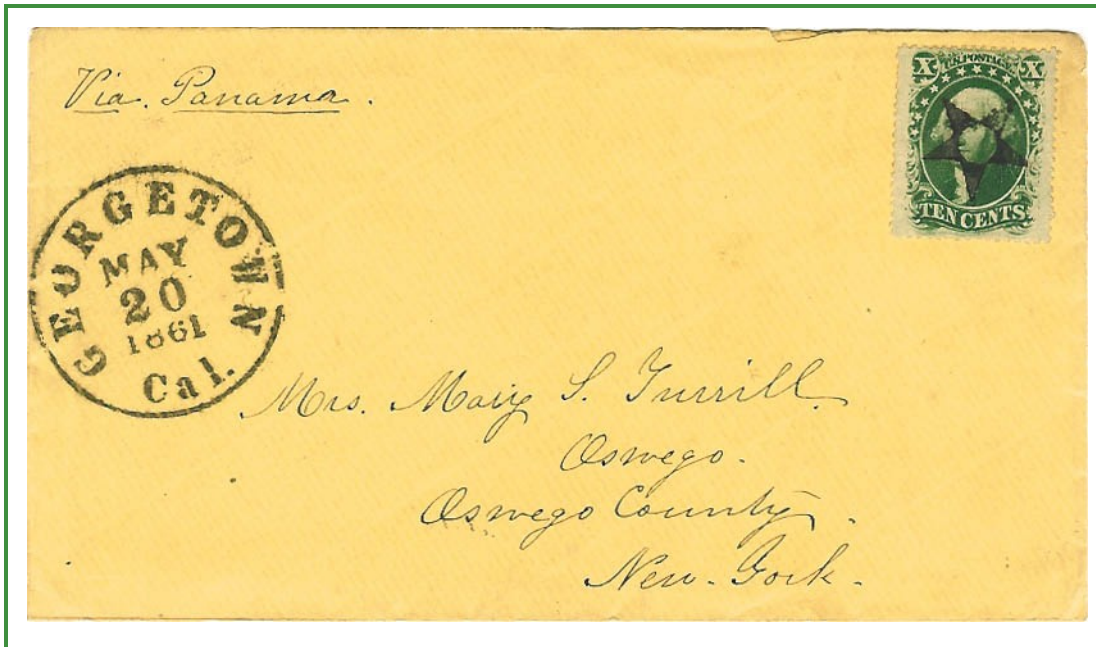 Via. Panama.
X U.S. POSTAGE X
TEN CENTS.
GEORGETOWN
MAY
20
1861
Cal.
Mrs. Mary S. Turrill.
Oswego.
Oswego County.
New-York.